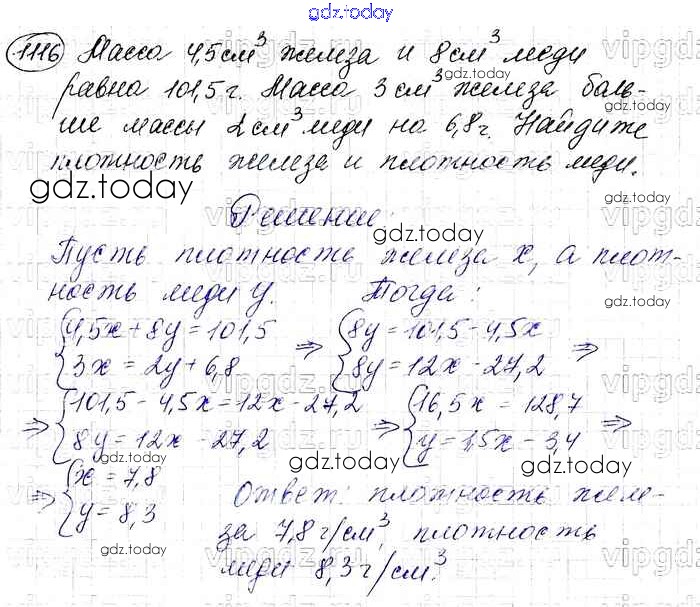 gdz.today
1116 Масса 4,5 см³ железа и 8 см³ меди
равна 101,5 г. Масса 3 см³ железа боль-
ше массы 2 см³ меди на 6,8 г. Найдите
плотность железа и плотность меди.
gdz.today
gdz.today
Решение:
gdz.today
Пусть плотность железа x, а плот-
ность меди y. Тогда:
{4,5x + 8y = 101,5 ⇒ {8y = 101,5 - 4,5x ⇒
{3x = 2y + 6,8 {8y = 12x - 27,2
⇒ {101,5 - 4,5x = 12x - 27,2 ⇒ {16,5x = 128,7 ⇒
{8y = 12x - 27,2 {y = 1,5x - 3,4
gdz.today
⇒ {x = 7,8
{y = 8,3
gdz.today
Ответ: плотность желе-
за 7,8 г/см³, плотность
меди 8,3 г/см³.
gdz.today
gdz.today